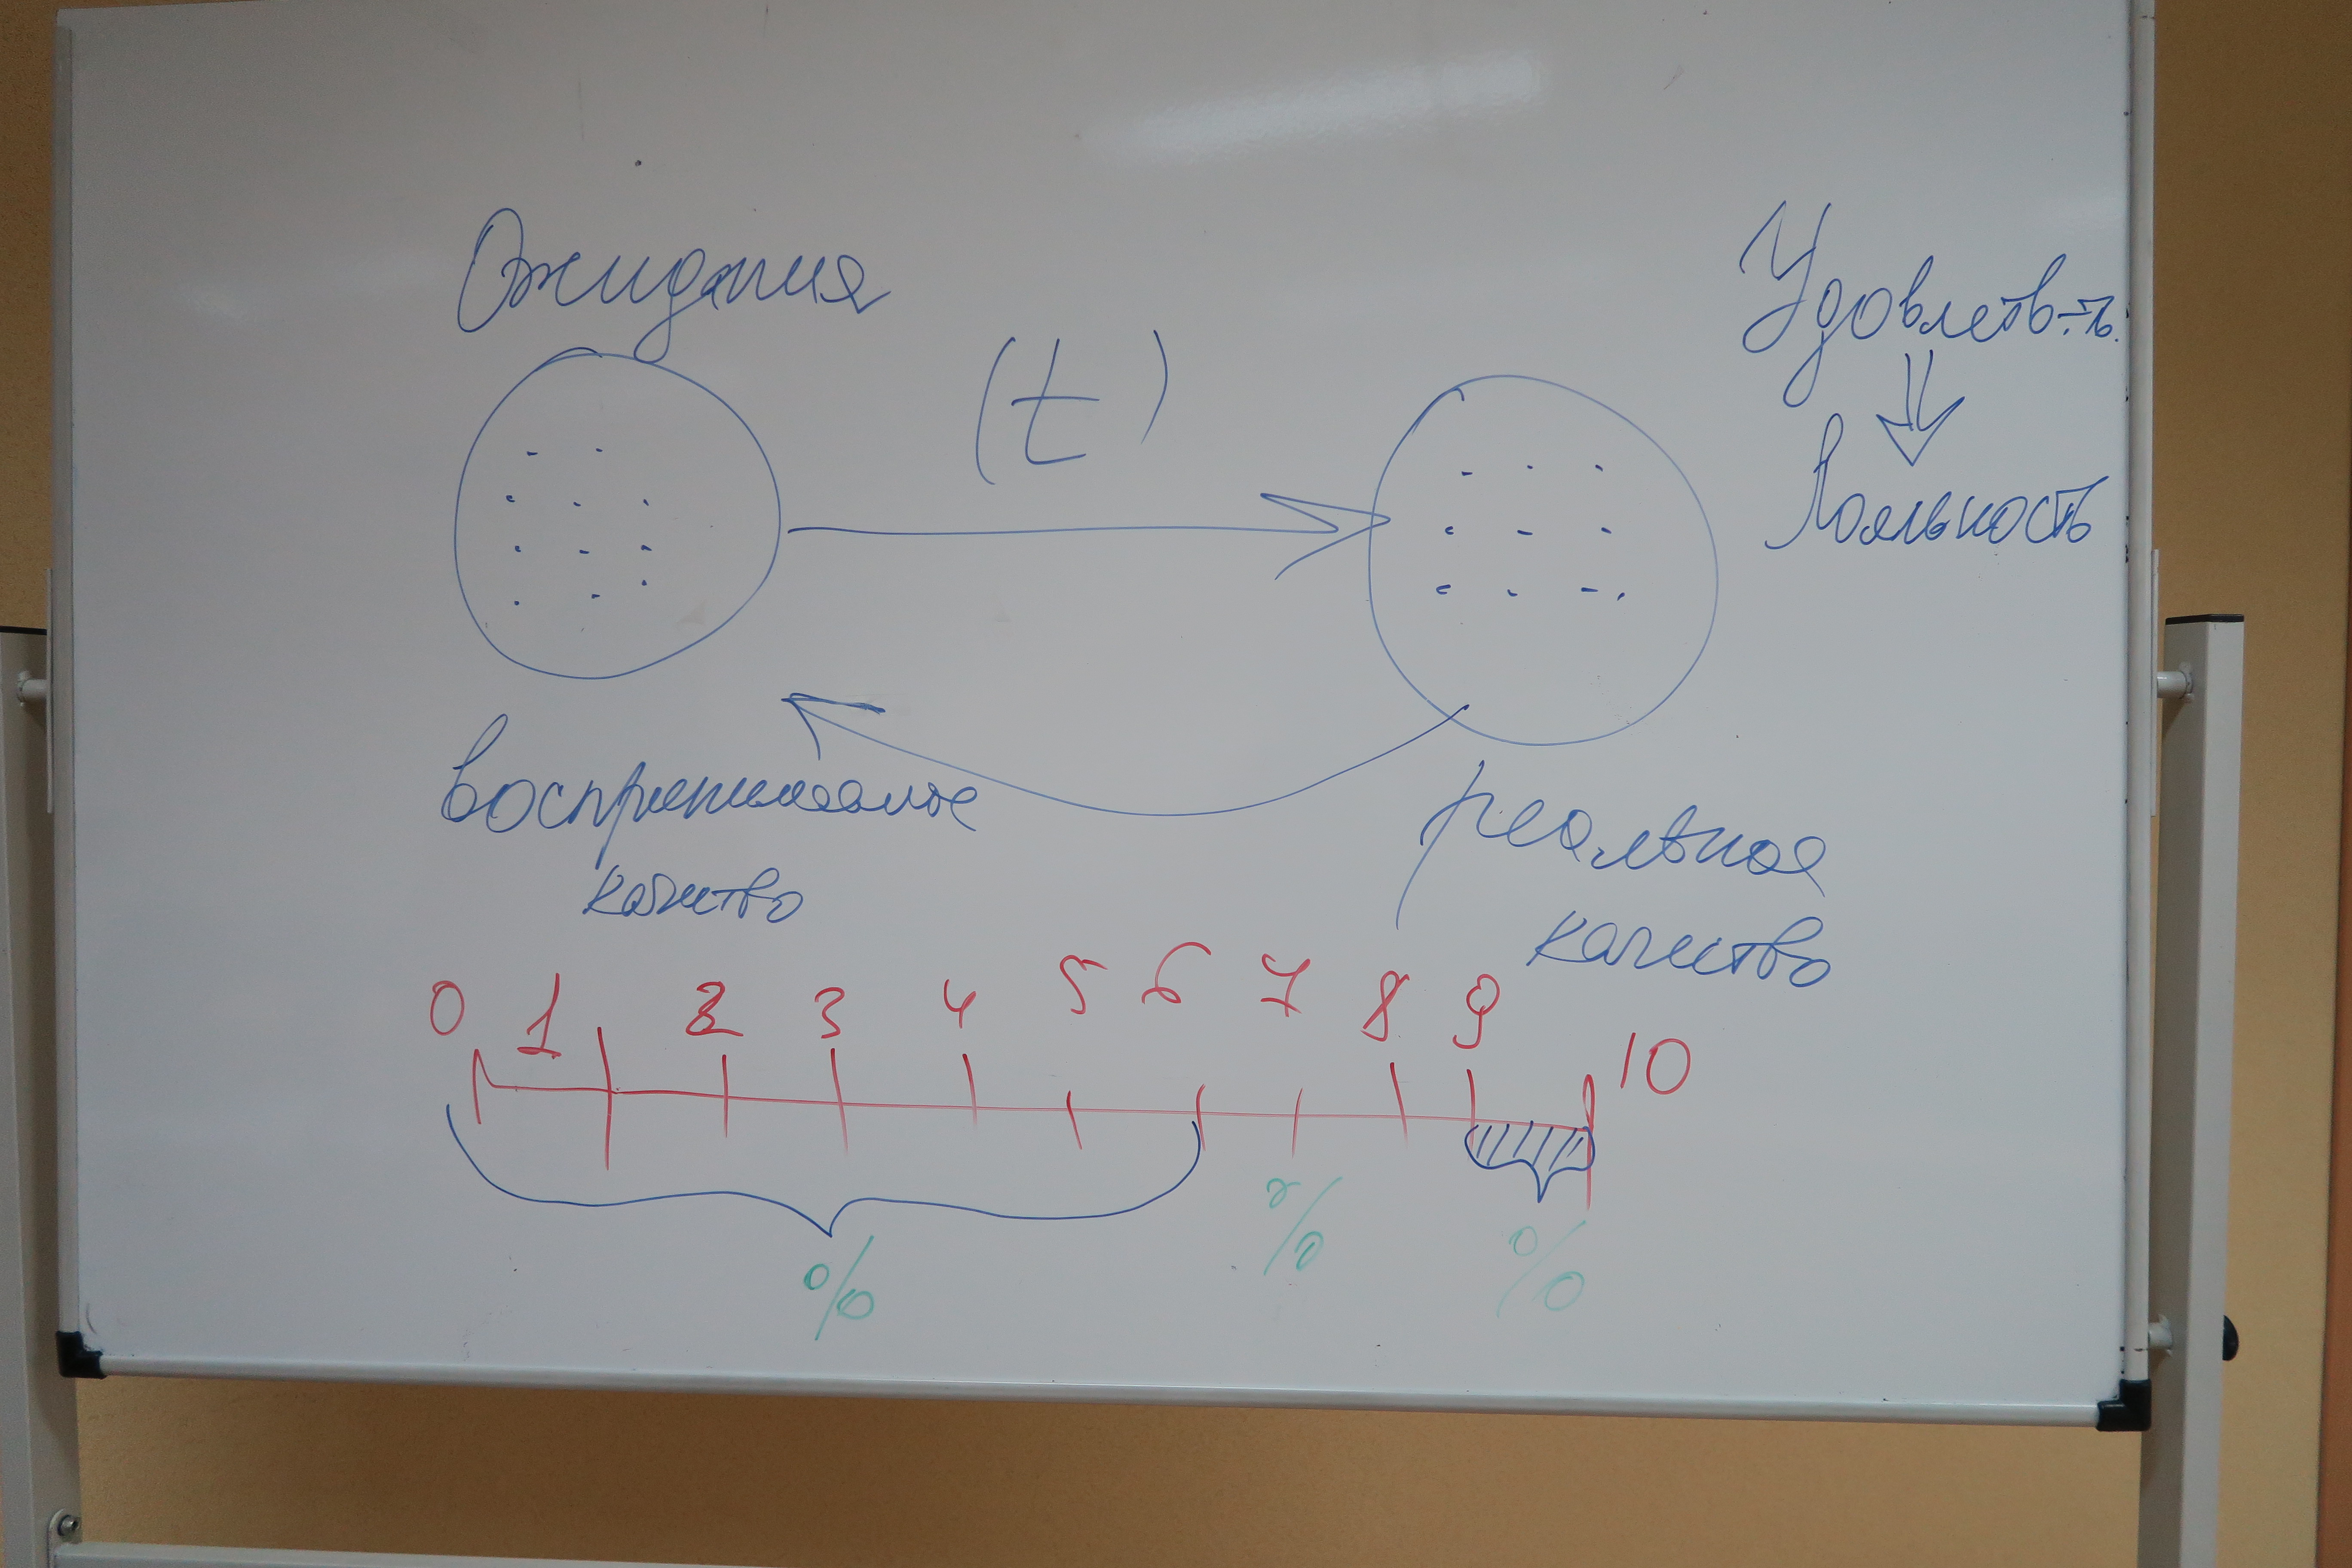 Ожидания
(t)
Удовлетв-ть.
Лояльность
воспринимаемое
качество
реальное
качество
0 1 2 3 4 5 6 7 8 9 10
% % %